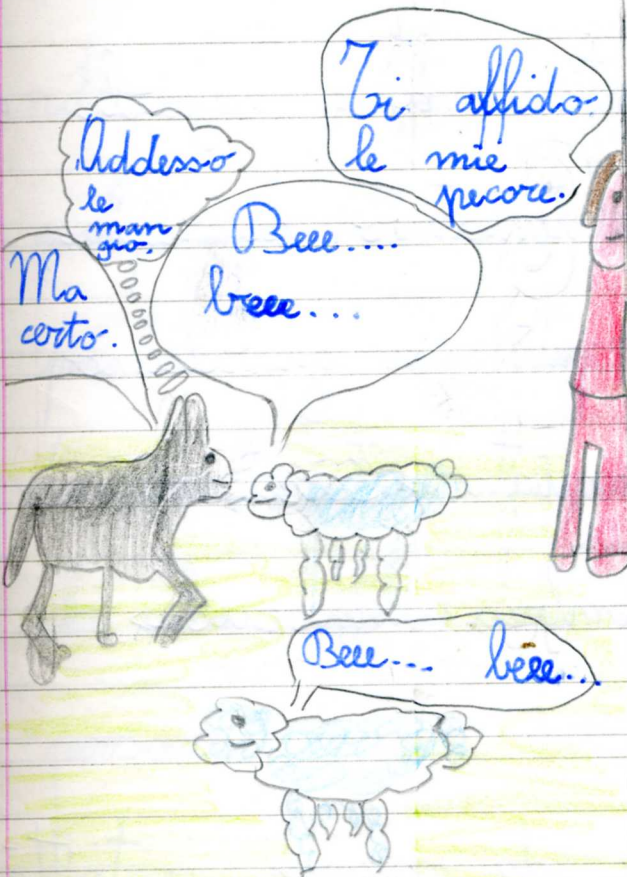 Ti affido
le mie
pecore.
Addesso
le
man
gio.
Ma
certo.
Beee....
beee...
Beee... beee...